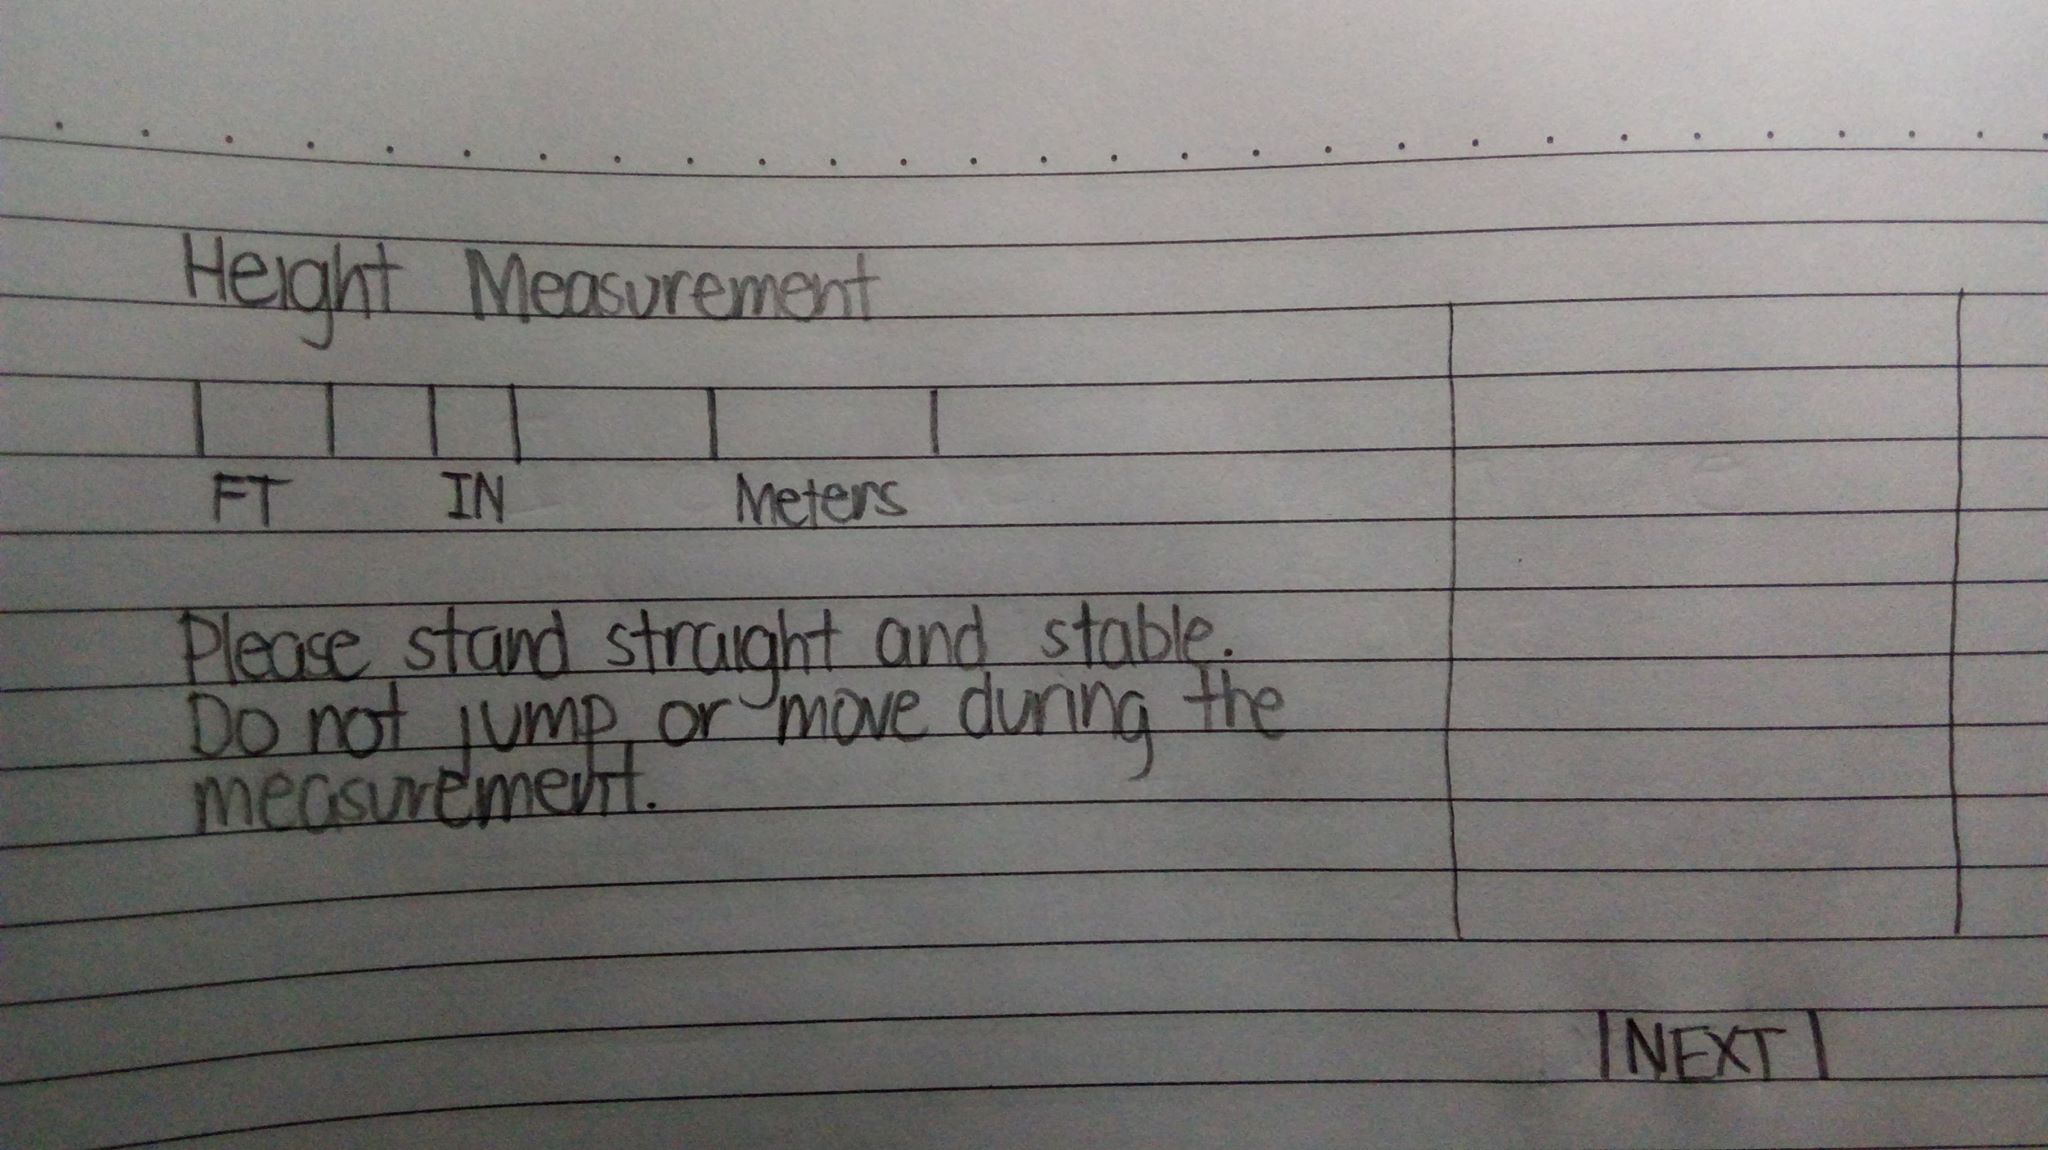 Height Measurement
FT IN Meters
Please stand straight and stable.
Do not jump or move during the
measurement.
NEXT